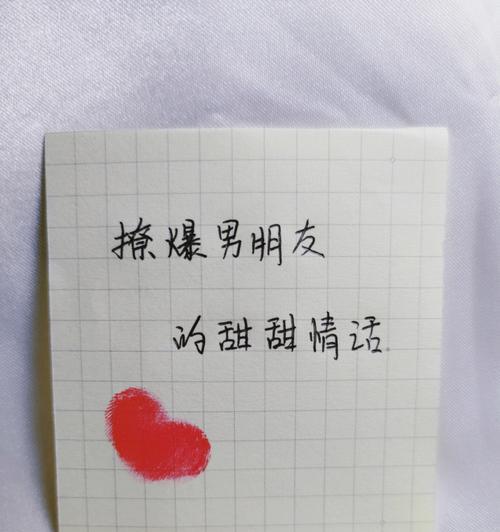 撩爆男朋友
的甜甜情话